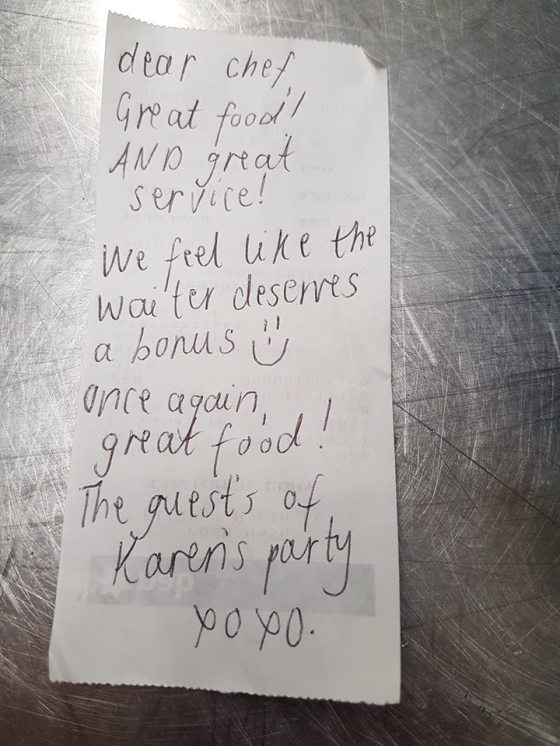 dear chef,
Great food!
AND great
service!
We feel like the
waiter deserves
a bonus
once again,
great food!
The guest's of
Karen's party
xoxo.